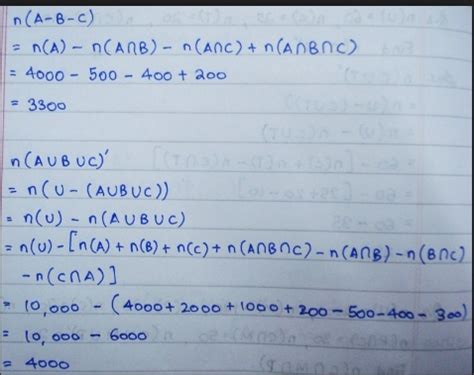 n(A-B-C)
= n(A) - n(A∩B) - n(A∩C) + n(A∩B∩C)
= 4000 - 500 - 400 + 200
= 3300
n(A∪B∪C)'
= n(U - (A∪B∪C))
= n(U) - n(A∪B∪C)
= n(U) - [n(A) + n(B) + n(C) + n(A∩B∩C) - n(A∩B) - n(B∩C)
- n(C∩A)]
= 10,000 - (4000 + 2000 + 1000 + 200 - 500 - 400 - 300)
= 10,000 - 6000
= 4000